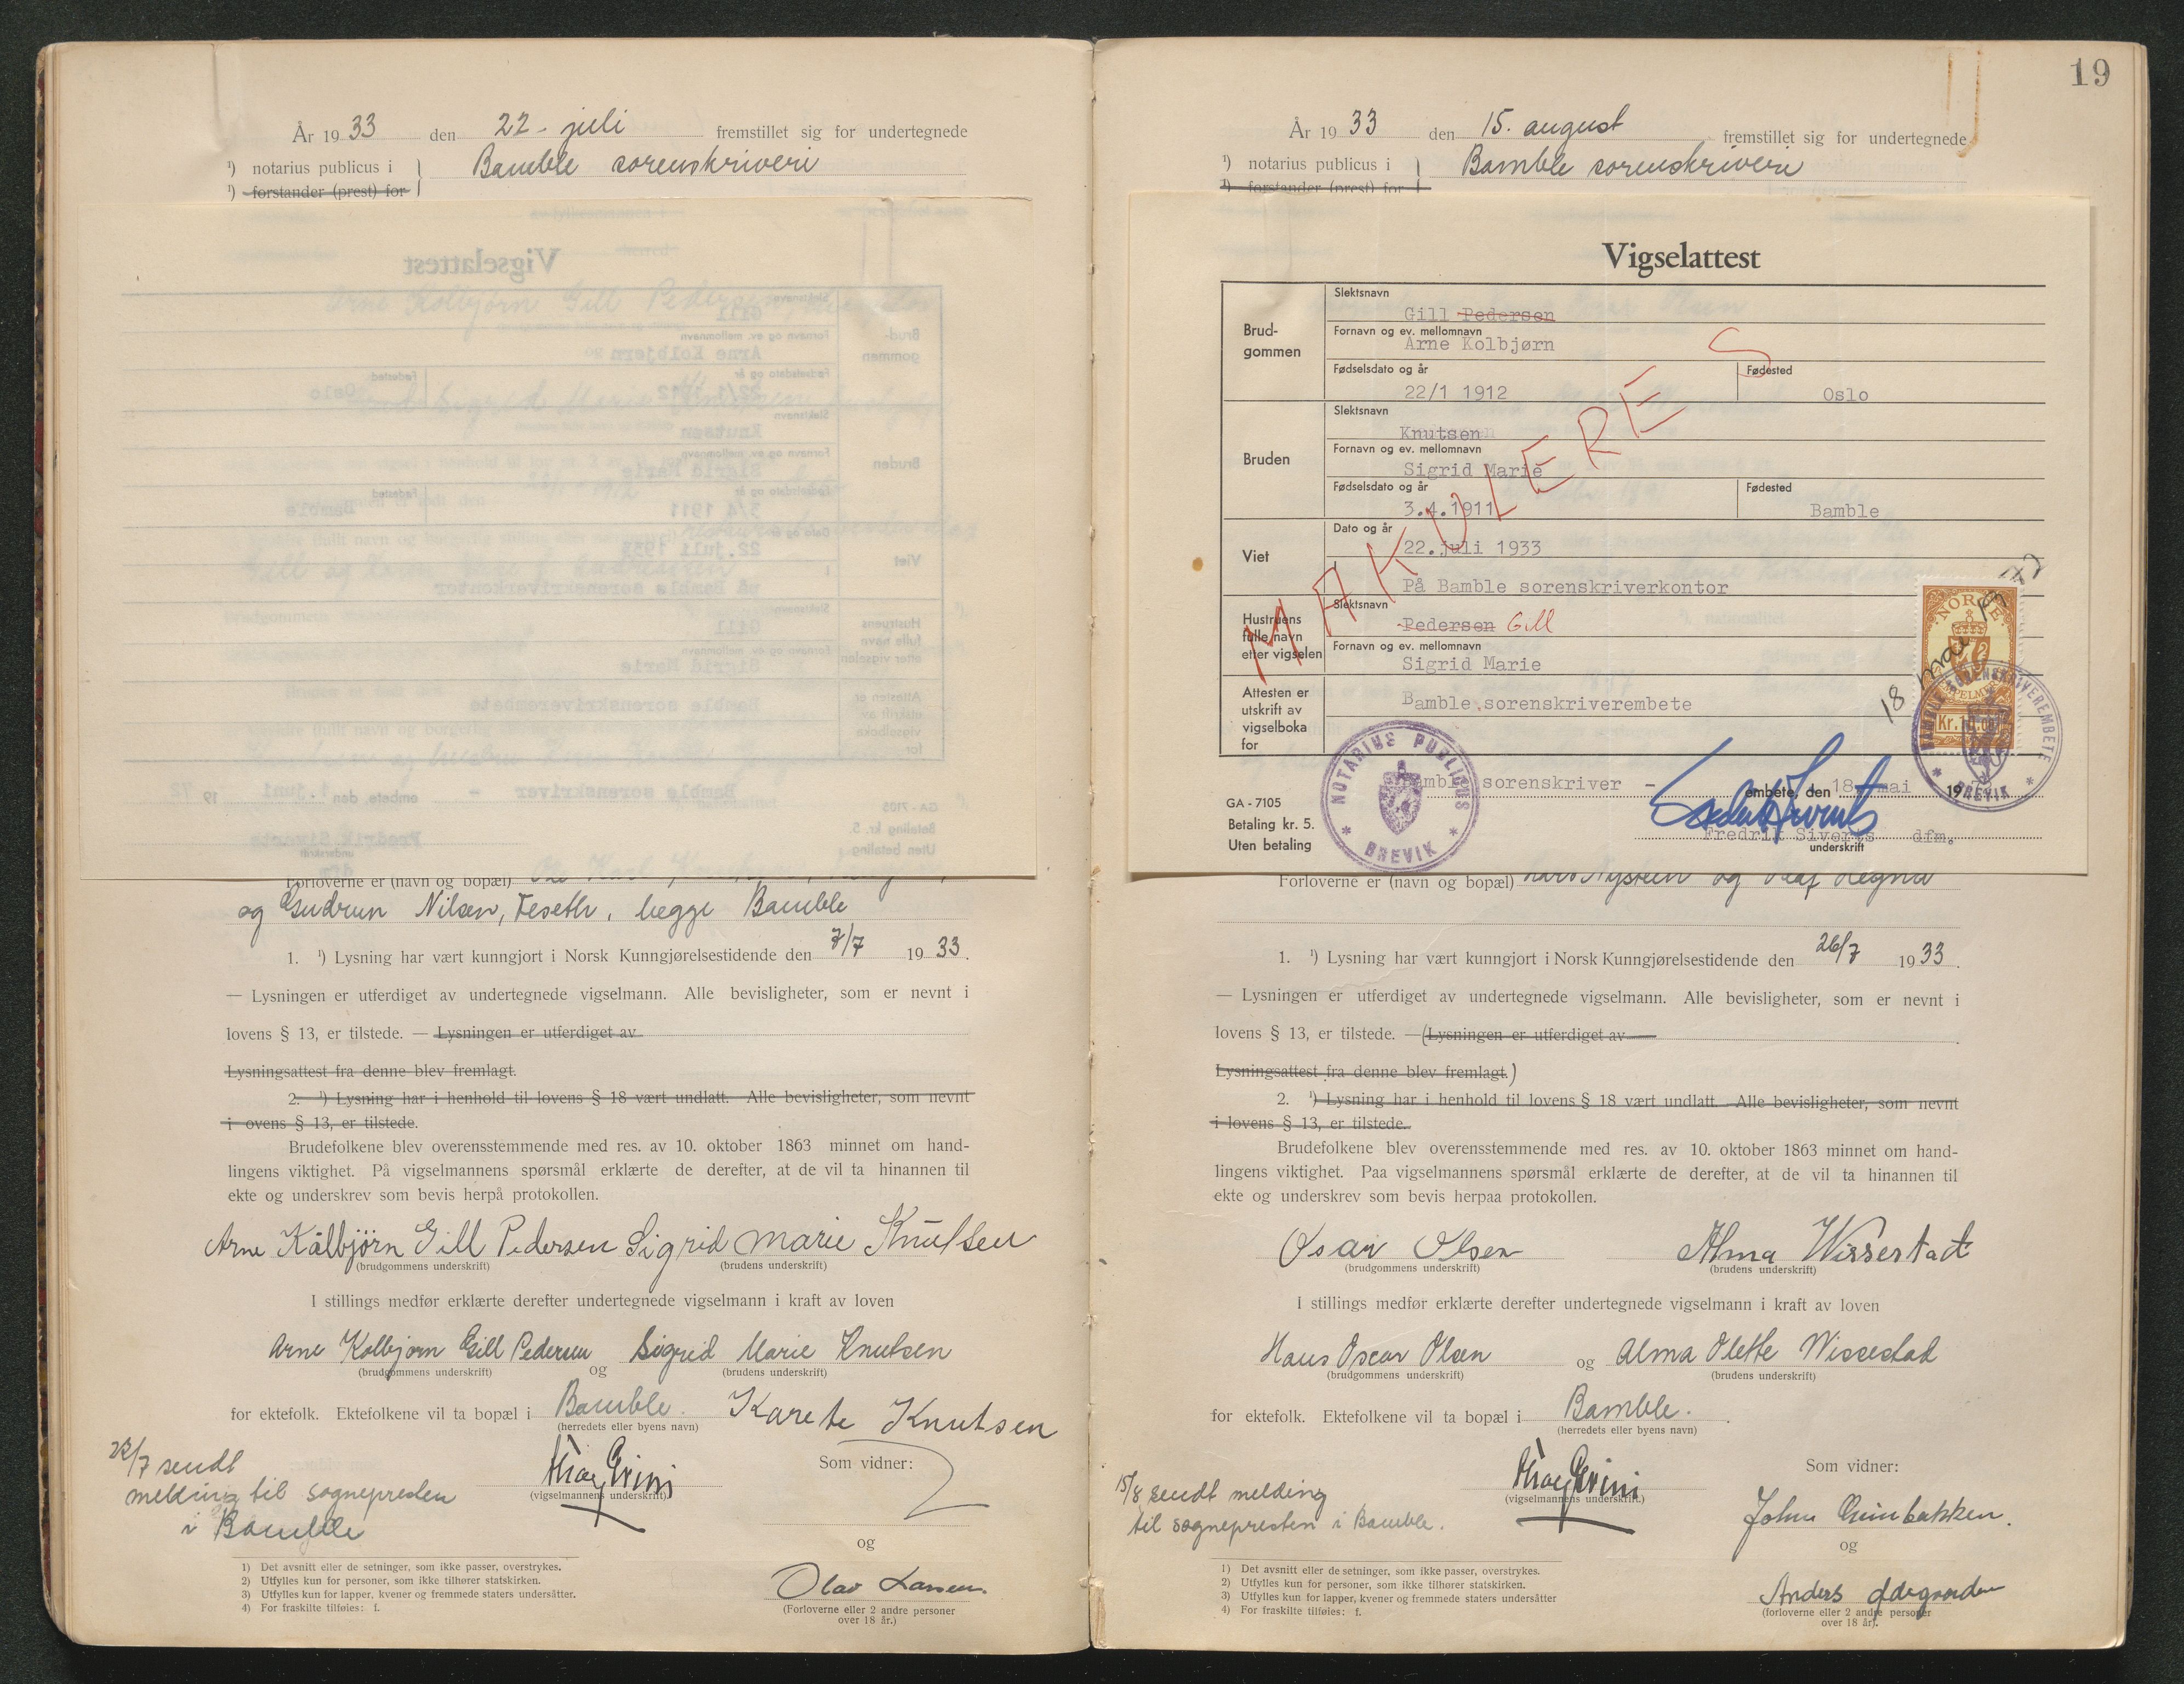 År 19 33 den 22 - juli fremstillet sig for undertegnede
¹) notarius publicus i } Bamble sorenskriveri
¹) forstander (prest) for
Vigselattest
Forloverne er (navn og bopæl)
og Gudrun Nilsen, Feseth, begge Bamble
1. ¹) Lysning har vært kunngjort i Norsk Kunngjørelsestidende den 7/7 19 33.
— Lysningen er utferdiget av undertegnede vigselmann. Alle bevisligheter, som er nevnt i
lovens § 13, er tilstede. — Lysningen er utferdiget av
Lysningsattest fra denne blev fremlagt.
2. ¹) Lysning har i henhold til lovens § 18 vært undlatt. Alle bevisligheter, som nevnt
i ovens § 13, er tilstede.
Brudefolkene blev overensstemmende med res. av 10. oktober 1863 minnet om hand-
lingens viktighet. På vigselmannens spørsmål erklærte de derefter, at de vil ta hinannen til
ekte og underskrev som bevis herpå protokollen.
Arne Kålbjörn Gill Pedersen Sigrid Marie Knutsen
(brudgommens underskrift) (brudens underskrift)
I stillings medfør erklærte derefter undertegnede vigselmann i kraft av loven
Arne Kolbjørn Gill Pedersen og Sigrid Marie Knutsen
(brudgommens underskrift) (brudens underskrift)
for ektefolk. Ektefolkene vil ta bopæl i Bamble. Karete Knutsen
(herredets eller byens navn)
22/7 sendt
melding til sognepresten
i Bamble
Som vidner:
(vigselmannens underskrift)
og
Olav Larsen.
(Forloverne eller 2 andre personer
over 18 år.)
1) Det avsnitt eller de setninger, som ikke passer, overstrykes.
2) Utfylles kun for personer, som ikke tilhører statskirken.
3) Utfylles kun for lapper, kvener og fremmede staters undersåtter.
4) For fraskilte tilføies: f.
19
År 19 33 den 15. august fremstillet sig for undertegnede
¹) notarius publicus i } Bamble sorenskriveri
¹) forstander (prest) for
Vigselattest
Brud-
gommen
Slektsnavn
Gill Pedersen
Fornavn og ev. mellomnavn
Arne Kolbjørn
Fødselsdato og år
22/1 1912
Fødested
Oslo
Bruden
Slektsnavn
Knutsen
Fornavn og ev. mellomnavn
Sigrid Marie
Fødselsdato og år
3.4.1911
Fødested
Bamble
Viet
Dato og år
22.juli 1933
i
På Bamble sorenskriverkontor
Hustruens
fulle navn
etter vigselen
Slektsnavn
Pedersen Gill
Fornavn og ev. mellomnavn
Sigrid Marie
Attesten er
utskrift av
vigselboka
for
Bamble sorenskriverembete
MAKULERES
NORGE
Kr.
18 mai 1972
BAMBLE SORENSKRIVEREMBETE * BREVIK *
NOTARIUS PUBLICUS * BREVIK *
Bamble sorenskriver - embete, den 18. mai 19
GA - 7105
Betaling kr. 5.
Uten betaling
Fredrik Siverts dfm.
underskrift
Forloverne er (navn og bopæl) Lars Nystein og Olaf Hegna
1. ¹) Lysning har vært kunngjort i Norsk Kunngjørelsestidende den 26/7 19 33.
— Lysningen er utferdiget av undertegnede vigselmann. Alle bevisligheter, som er nevnt i
lovens § 13, er tilstede. — (Lysningen er utferdiget av
Lysningsattest fra denne blev fremlagt.)
2. ¹) Lysning har i henhold til lovens § 18 vært undlatt. Alle bevisligheter, som nevnt
i lovens § 13, er tilstede.
Brudefolkene blev overensstemmende med res. av 10. oktober 1863 minnet om hand-
lingens viktighet. Paa vigselmannens spørsmål erklærte de derefter, at de vil ta hinannen til
ekte og underskrev som bevis herpaa protokollen.
Osar Olsen Alma Wissestad
(brudgommens underskrift) (brudens underskrift)
I stillings medfør erklærte derefter undertegnede vigselmann i kraft av loven
Hans Oscar Olsen og Alma Olette Wissestad
(brudgommens underskrift) (brudens underskrift)
for ektefolk. Ektefolkene vil ta bopæl i Bamble.
(herredets eller byens navn)
15/8 sendt melding
til sognepresten i Bamble.
Som vidner:
(vigselmannens underskrift.)
John Grinbakken.
og
Anders Ødegaarden
(forloverne eller 2 andre personer
over 18 år).
1) Det avsnitt eller de setninger, som ikke passer, overstrykes.
2) Utfylles kun for personer, som ikke tilhører statskirken.
3) Utfylles kun for lapper, kvener og fremmede staters undersåtter
4) For fraskilte tilføies: f.